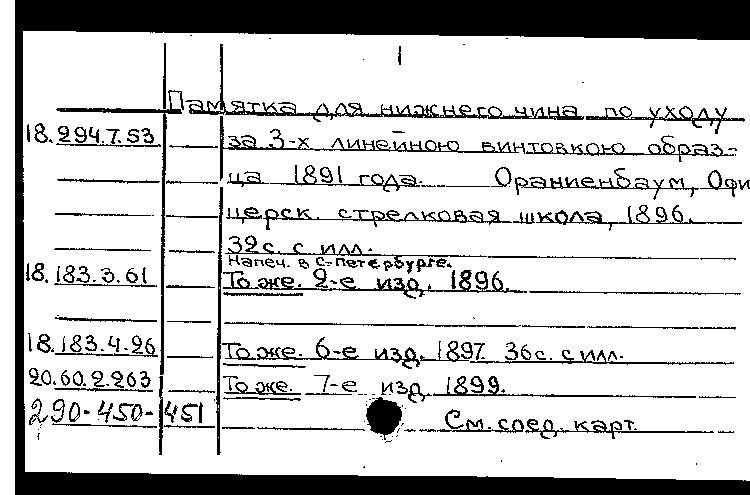 Памятка для нижнего чина по уходу
18.294.7.53 за 3-х линейною винтовкою образ-
ца 1891 года. Ораниенбаум, Офи
церск. стрелковая школа, 1896.
32с. с илл.
Напеч. в С-Петербурге.
18.183.3.61 То же. 2-е изд. 1896.
18.183.4.26 То же. 6-е изд. 1897. 36с. с илл.
20.60.2.263 То же. 7-е изд. 1899.
290-450-451 См. след. карт.